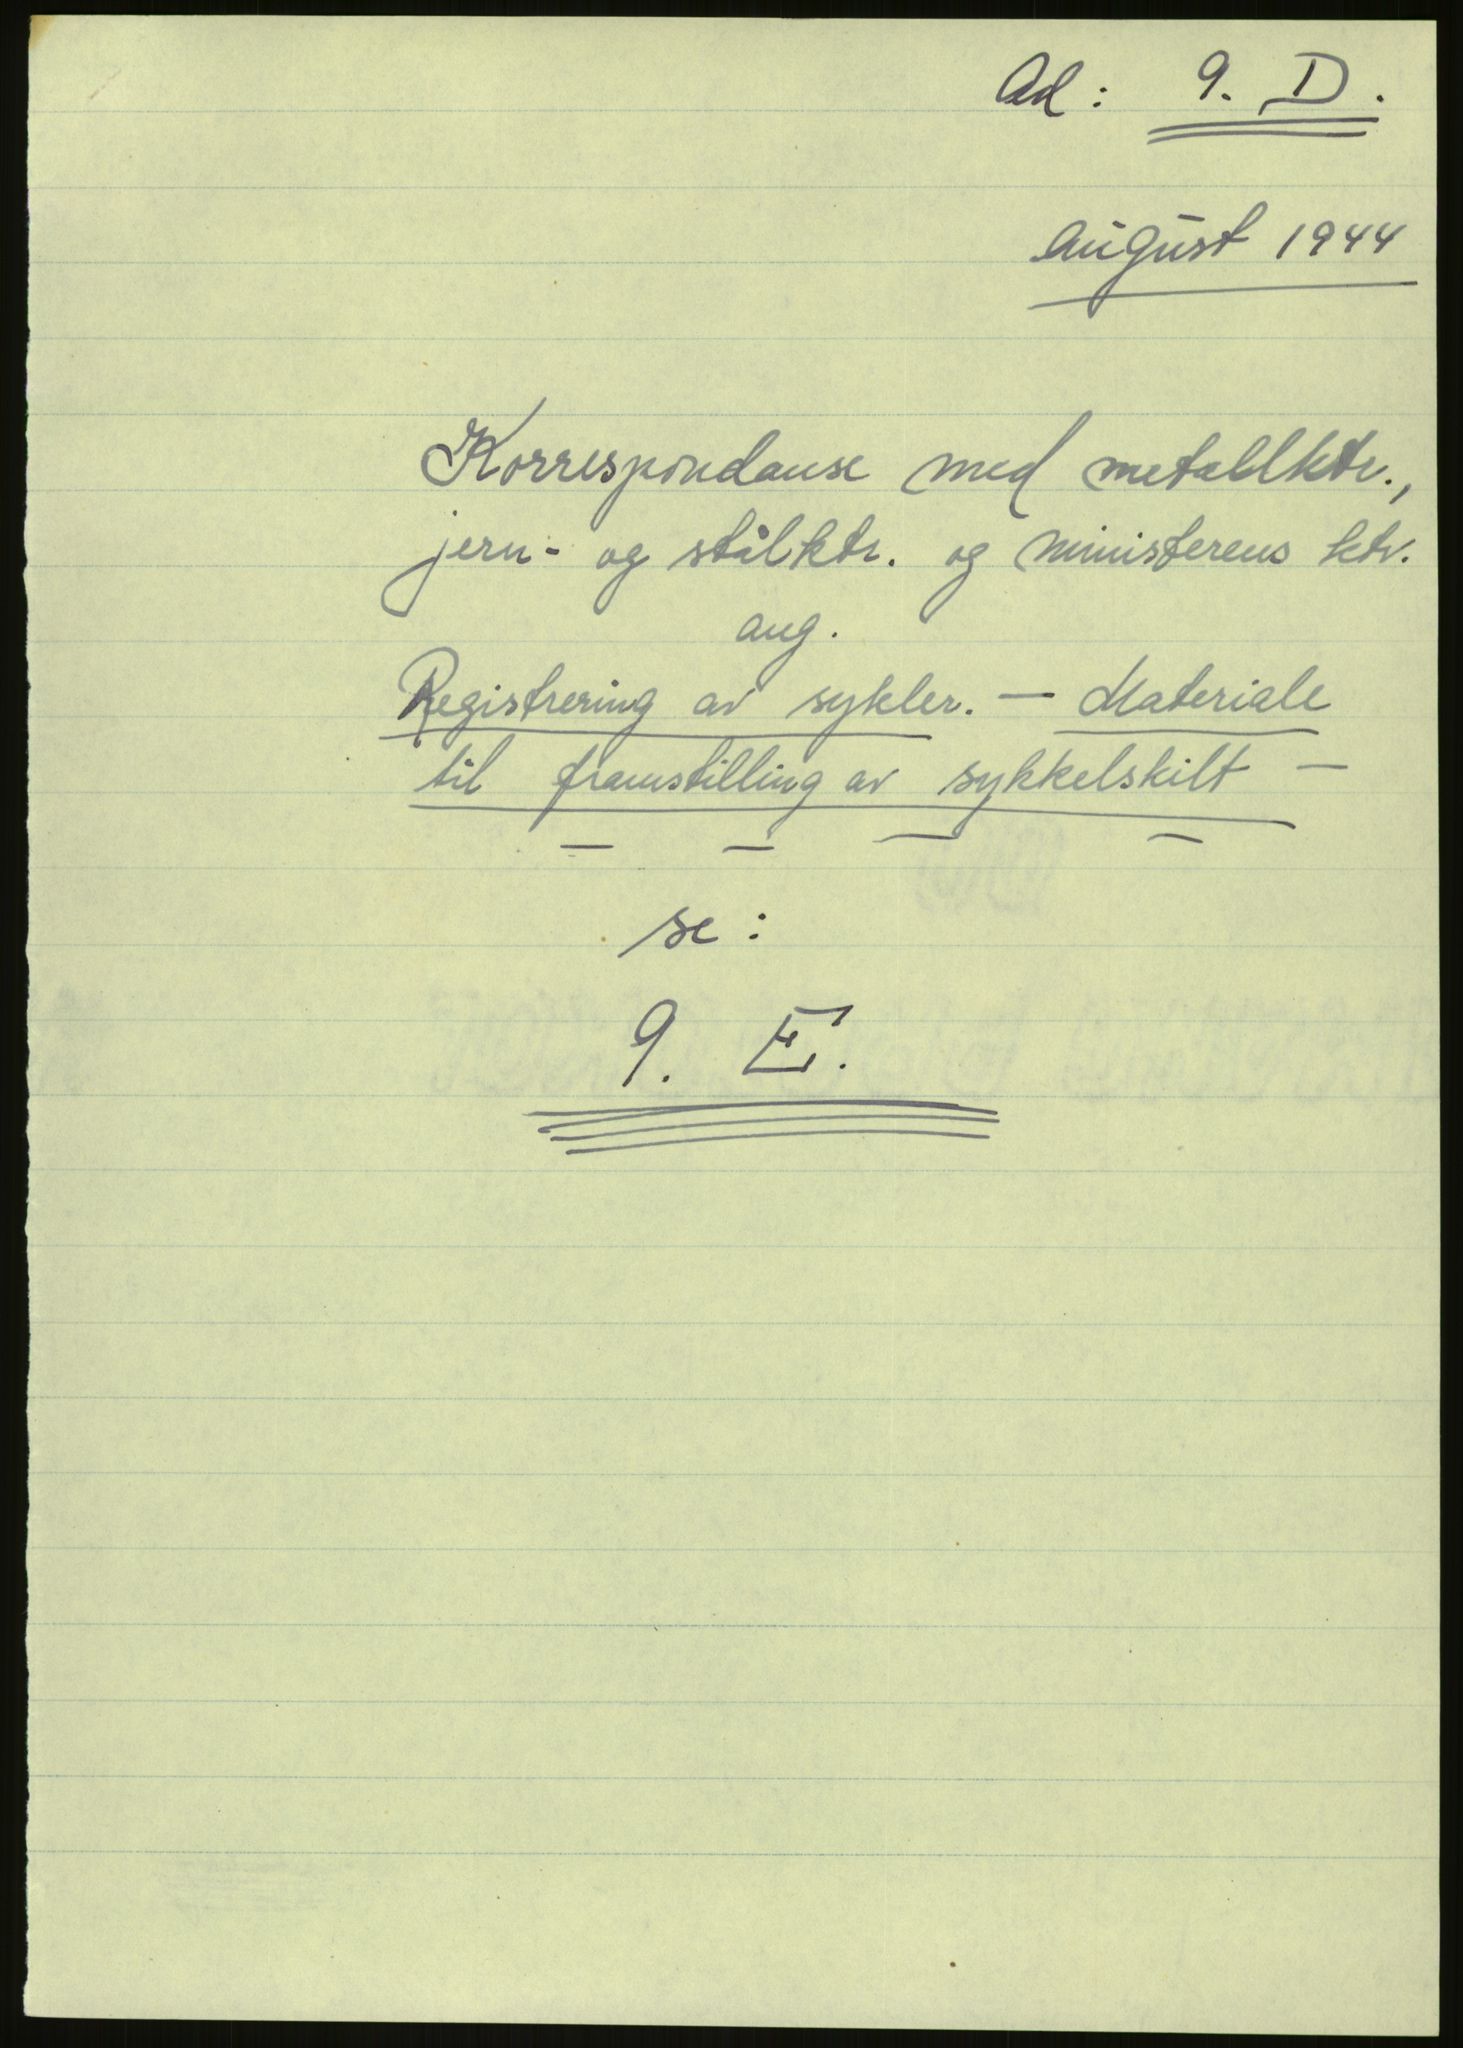 Ad: 9. D.
August 1944
Korrespondanse med metallktr.,
jern- og stålktr. og ministerens ktr.
ang.
Registrering av sykler. — Materiale
til framstilling av sykkelskilt —
se:
9. E.